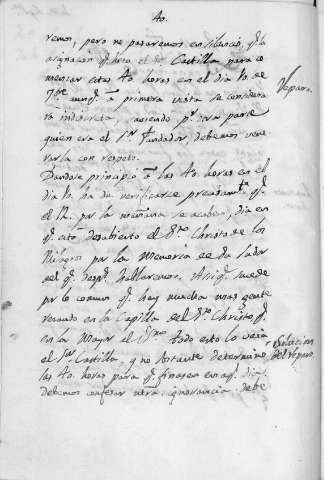 40.
remos, pero no pasaremos en silencio, q.e la
asignacion q.e hizo el S.r Castilla para co
menzar estas 40. horas en el dia 10. de
7bre aunq.e à primera vista se considera
ra indiscreta, haciendo p.r otra parte
quien era el S.r Fundador, debemos vene
rarla con respeto.
Dandose principio à las 40. horas en el
dia 10. ha de verificarse precisam.te q.e
el 12. por la mañana se acaben, dia en
q.e està descubierto el S.to Christo de los
Milagros por la Memoria de
del q.e desp.s hallaremos. Asi q.e sucede
por lo comun q.e hay mucha mas gente
rezando en la Capilla del S.to Christo q.e
en la Mayor el S.mo todo esto lo veia
el S.or Castilla, y no obstante determinó
las 40. horas para q.e finasen en aq.l dia,
debemos confesar nŕa. ignorancia debe
Reparo.
Solucion
del Reparo.